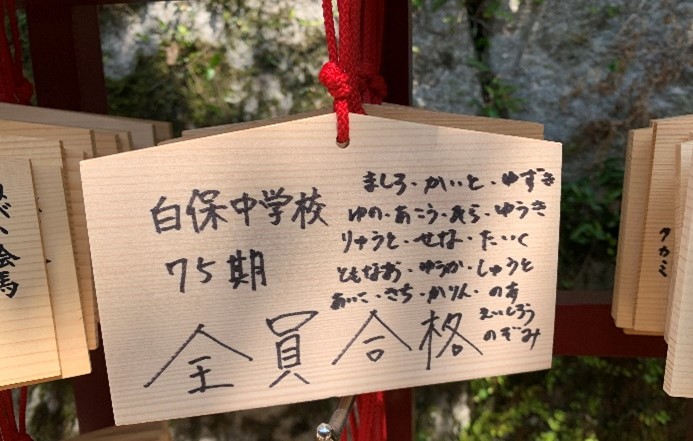 白保中学校
75期
全員合格
ましろ・かいと・ゆずき
ゆの・あこう・そら・ゆうき
りゅうと・せな・たいく
ともなお・ゆうか・しゅうと
あいこ・さち・かりん・のあ
えいしろう
のぞみ
絵馬
タカミ